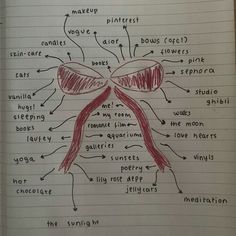 makeup
pinterest
vogue
candles
dior
bows (ofc!)
skin-care
flowers
books
pink
cats
sephora
vanilla
studio
ghibli
hugs!
me!
sleeping
my room
walks
books
romance film
the moon
laufey
aquariums
love hearts
galleries
yoga
sunsets
vinyls
poetry
hot
chocolate
lily rose depp
jellycats
meditation
the sunlight